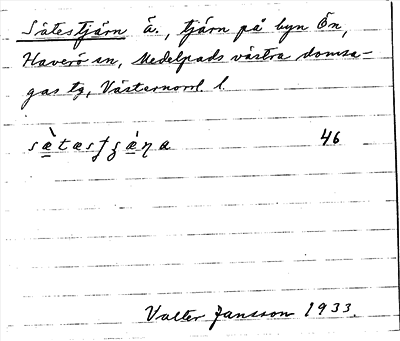 Sätestjärn ä., tjärn på byn Ön,
Haverö sn, Medelpads västra domsa-
gas tg, Västernorrl. l.
46
Valter Jansson 1933.